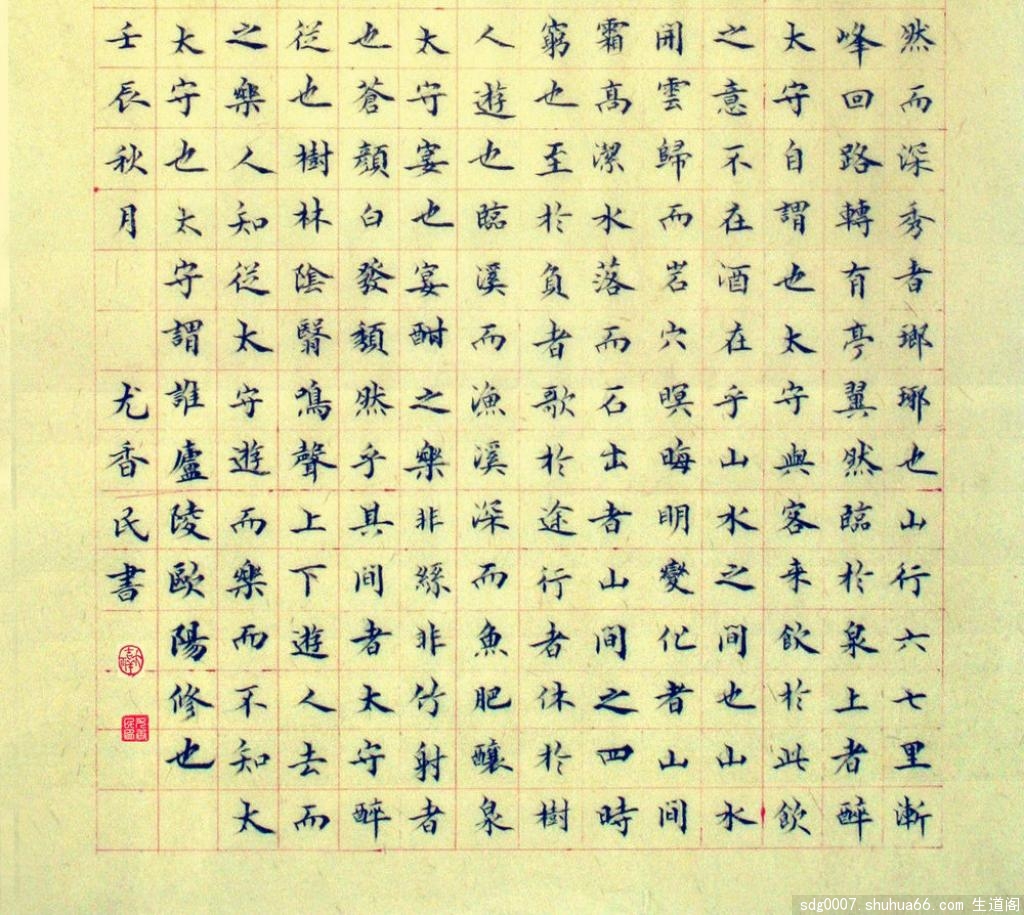 然而深秀者瑯琊也山行六七里漸
峰回路轉有亭翼然臨於泉上者醉
太守自謂也太守與客来飲於此飲
之意不在酒在乎山水之間也山水
開雲歸而岩穴暝晦明變化者山間
霜高潔水落而石出者山間之四時
窮也至於負者歌於途行者休於樹
人遊也臨溪而漁溪深而魚肥釀泉
太守宴也宴酣之樂非絲非竹射者
也蒼顏白發頹然乎其間者太守醉
從也樹林陰翳鳴聲上下遊人去而
之樂人知從太守遊而樂而不知太
太守也太守謂誰廬陵歐陽修也
壬辰秋月 尤香民書
sdg0007.shuhua66.com 生道阁